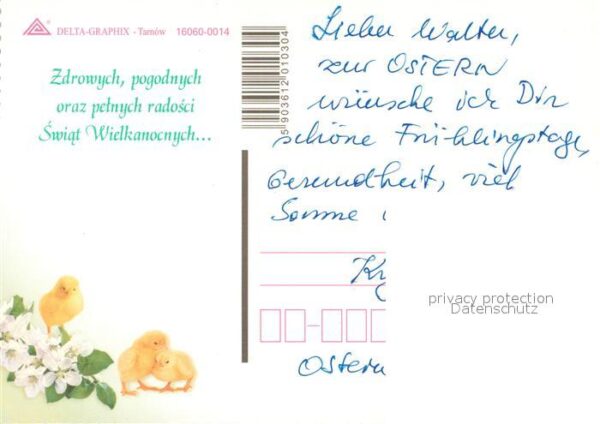 DELTA-GRAPHIX - Tarnów 16060-0014
Zdrowych, pogodnych
oraz pełnych radości
Świąt Wielkanocnych...
5 903612 010304
Lieber Walter,
zur OSTERN
wünsche ich Dir
schöne Frühlingstage,
Gesundheit, viel
Sonne
privacy protection
Datenschutz
Ostern